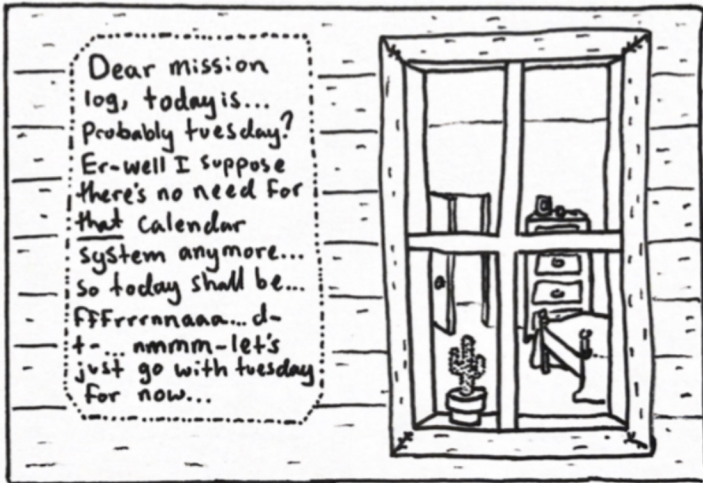 Dear mission
log, today is...
Probably tuesday?
Er-well I suppose
there's no need for
that calendar
system anymore...
so today shall be...
fffrrrnnaaa... d-
t-... nmmm-let's
just go with tuesday
for now...